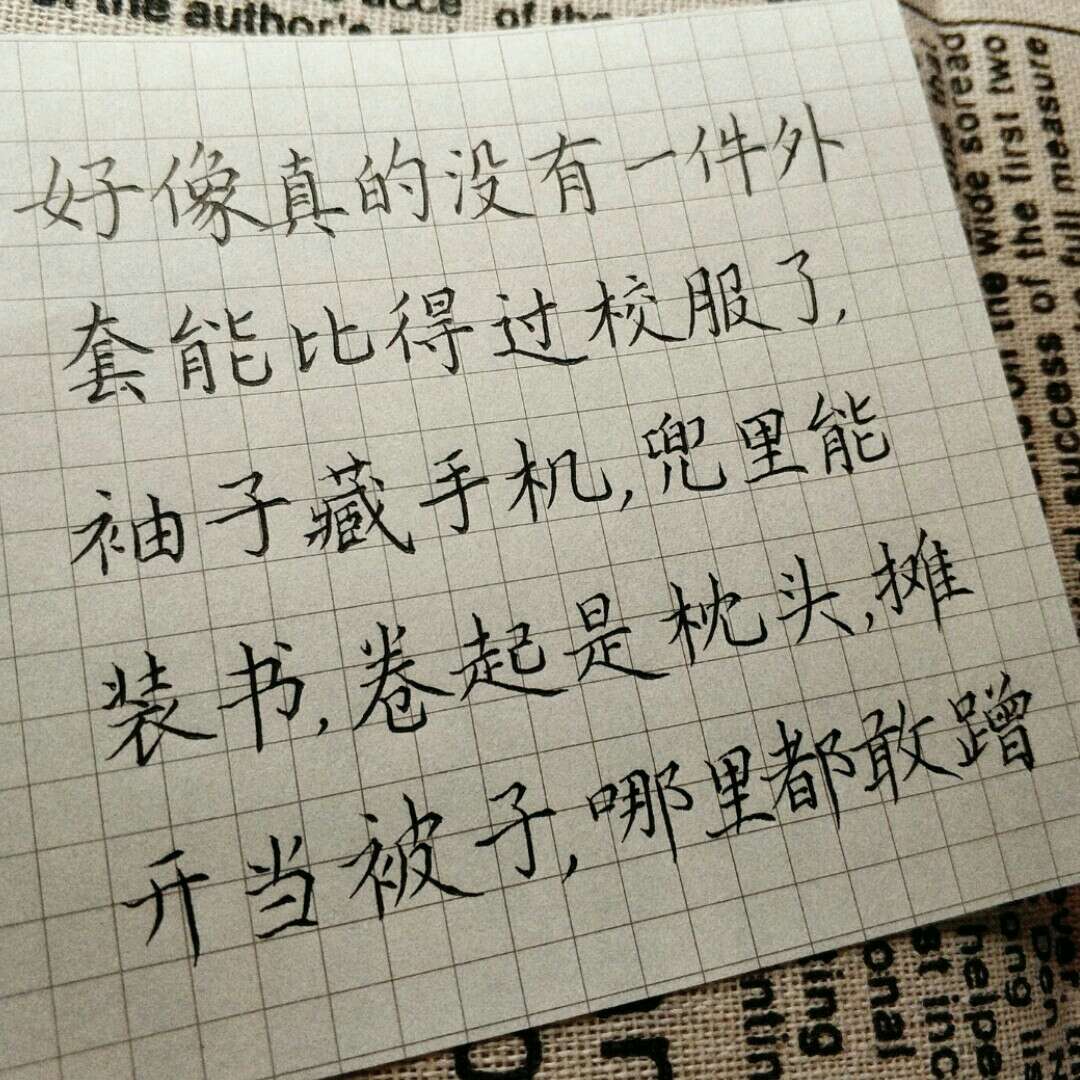 the author's
of the
好像真的没有一件外
套能比得过校服了,
袖子藏手机,兜里能
装书,卷起是枕头,摊
开当被子,哪里都敢蹭
wide soread
the first two
success of
full measure